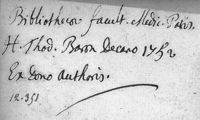 Bibliothecæ facult. Medic. Paris.
H. Thod. Baron Decano 1752
Ex dono authoris.
12.351